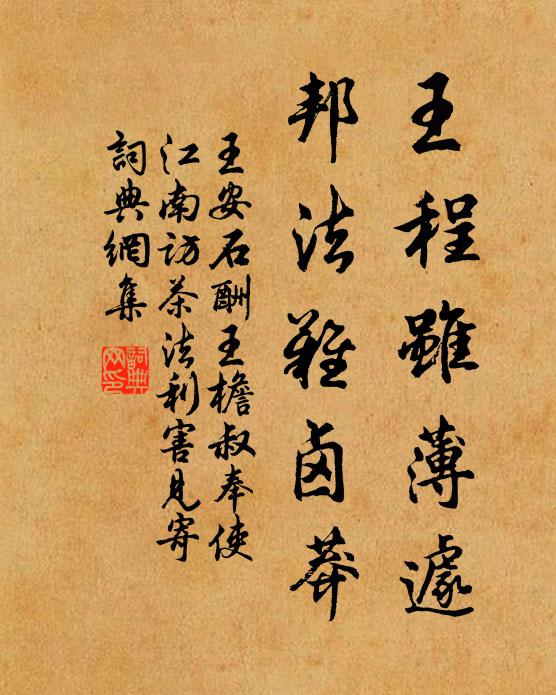 王程雖薄遽
邦法難鹵莽
王安石酬王檐叔奉使
江南訪茶法利害見寄
詞典網集
詞典網印